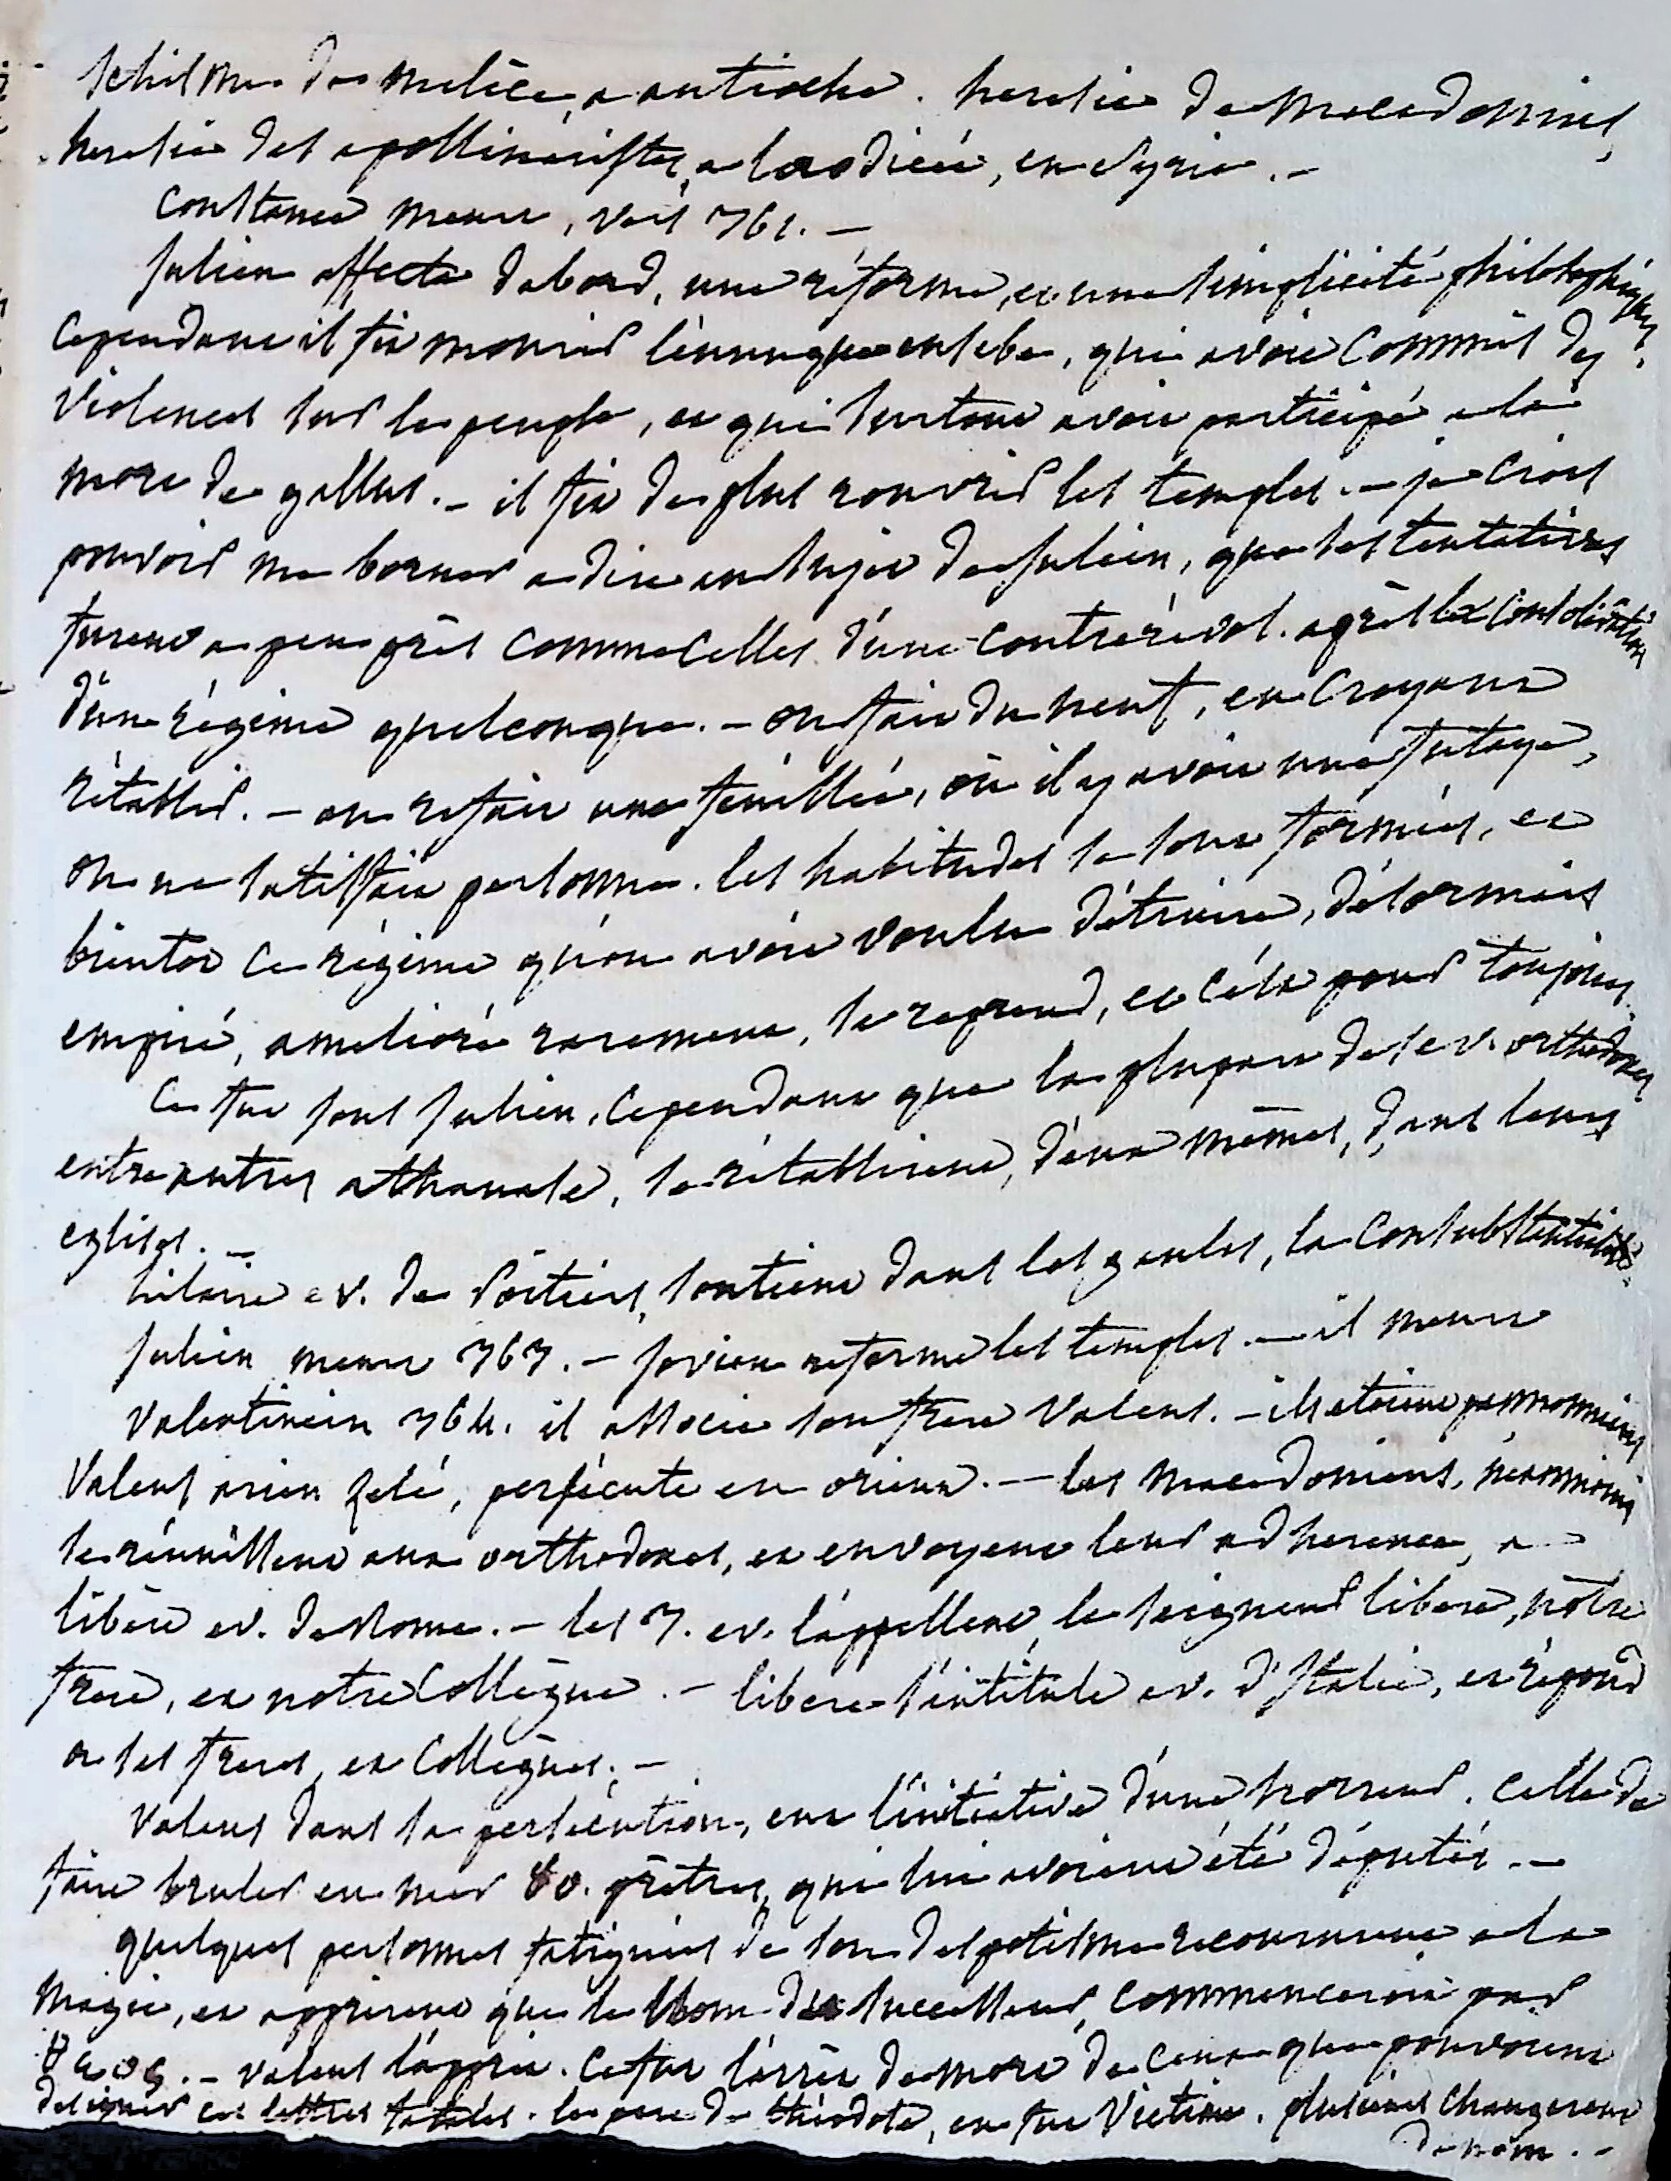 schisme de melèce, a antioche. heresie de macedonius,
heresie des apollinaristes, a laodicée, en Syrie. –
Constance meurt, vers 361. –
Julien affecta dabord, une réforme, et une simplicité philosophique,
Cependant il fit mourir l'eunuque eusebe, qui avoit commis des
violences sur le peuple, et qui surtout avoit participé a la
mort de gallus. – il fit de plus rouvrir les temples. – je crois
pouvoir me borner a dire au sujet de Julien, que ses tentatives
furent a peu près comme celles d'une contrérévol. après la consolidation
d'un régime quelconque. – on fait du neuf, en croyant
rétablir. – on refait une feuillée, où il y avoit une futaye,
on ne satisfait personne. les habitudes se sont formées, et
bientot ce régime qu'on avoit voulu détruire, désormais
empiré, amelioré rarement, se reprend, et céla pour toujours.
Ce fut sous Julien, cependant que la plupart des ev. orthodoxes
entre autres athanase, se rétablirent, d'eux mêmes, dans leurs
eglises. –
hilaire ev. de Poitiers, soutient dans les gaules, la consubstantialité.
Julien meurt 363. – Jovien referme les temples. – il meurt
Valentinien 364. il associe son frere Valens. – ils etoient pannoniens
Valens arien zelé, persécute en orient. – les macedoniens, néanmoins
se réunissent aux orthodoxes, et envoyent leur adherence, a
libère ev. de Rome. – les 3. ev. l'appellent, le seigneur libere, nôtre
frere, et notre collègue. – libere s'intitule ev. d'Italie, et répond
a ses freres, et collègues. –
Valens dans sa persécution, eut l'initiative d'une horreur. celle de
faire bruler en mer 80. prêtres, qui lui avoient été députés. –
quelques personnes fatiguées de son despotisme recoururent a la
magie, et apprirent que le nom du successeur, commenceroit par
θεοδ. – valens l'apprit. ce fut l'arrêt de mort de ceux que pouvoient
designer ces lettres fatales. le pere de théodose, en fut victime. plusieurs changerent
de nom. –